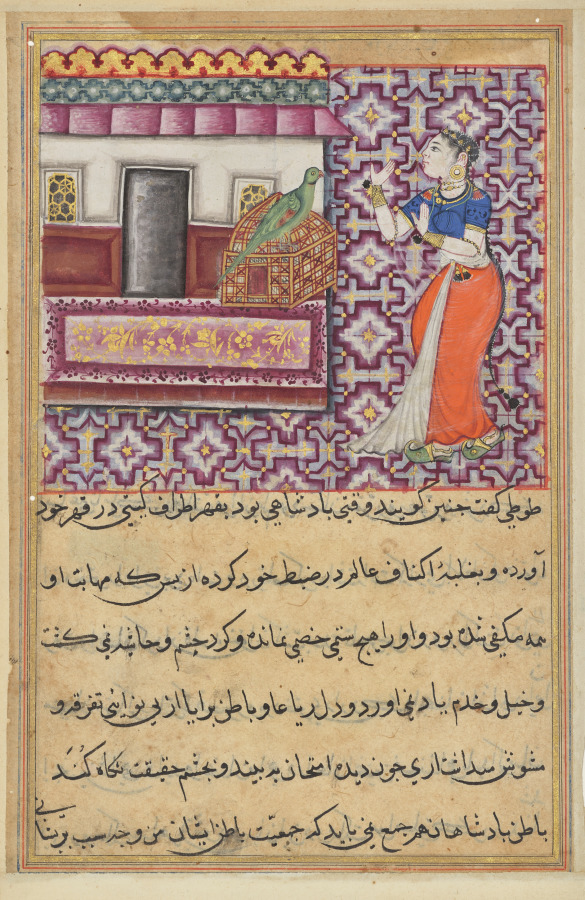 طوطی گفت چنین گویند وقتی بادشاهی بود بقهر اطراف گیتی در قهر خود
آورده و بغلبه اکناف عالم در ضبط خود کرده از بس که مهابت او
همه مکیفی شده بود و او را هیچ ستمی خصمی نمانده و کرد چشم و حاشیه نمی کشت
و خیل و خدم یاد نمی اورد و دل رعایا و باطن برایا از بی نوایی تفرقه و
مشوش میداشت اری چون دیده امتحان به بیند و بچشم حقیقت نگاه کند
باطن بادشاهان هم جمع نمی باید که جمعیت باطن ایشان من وجه سبب پریشانی